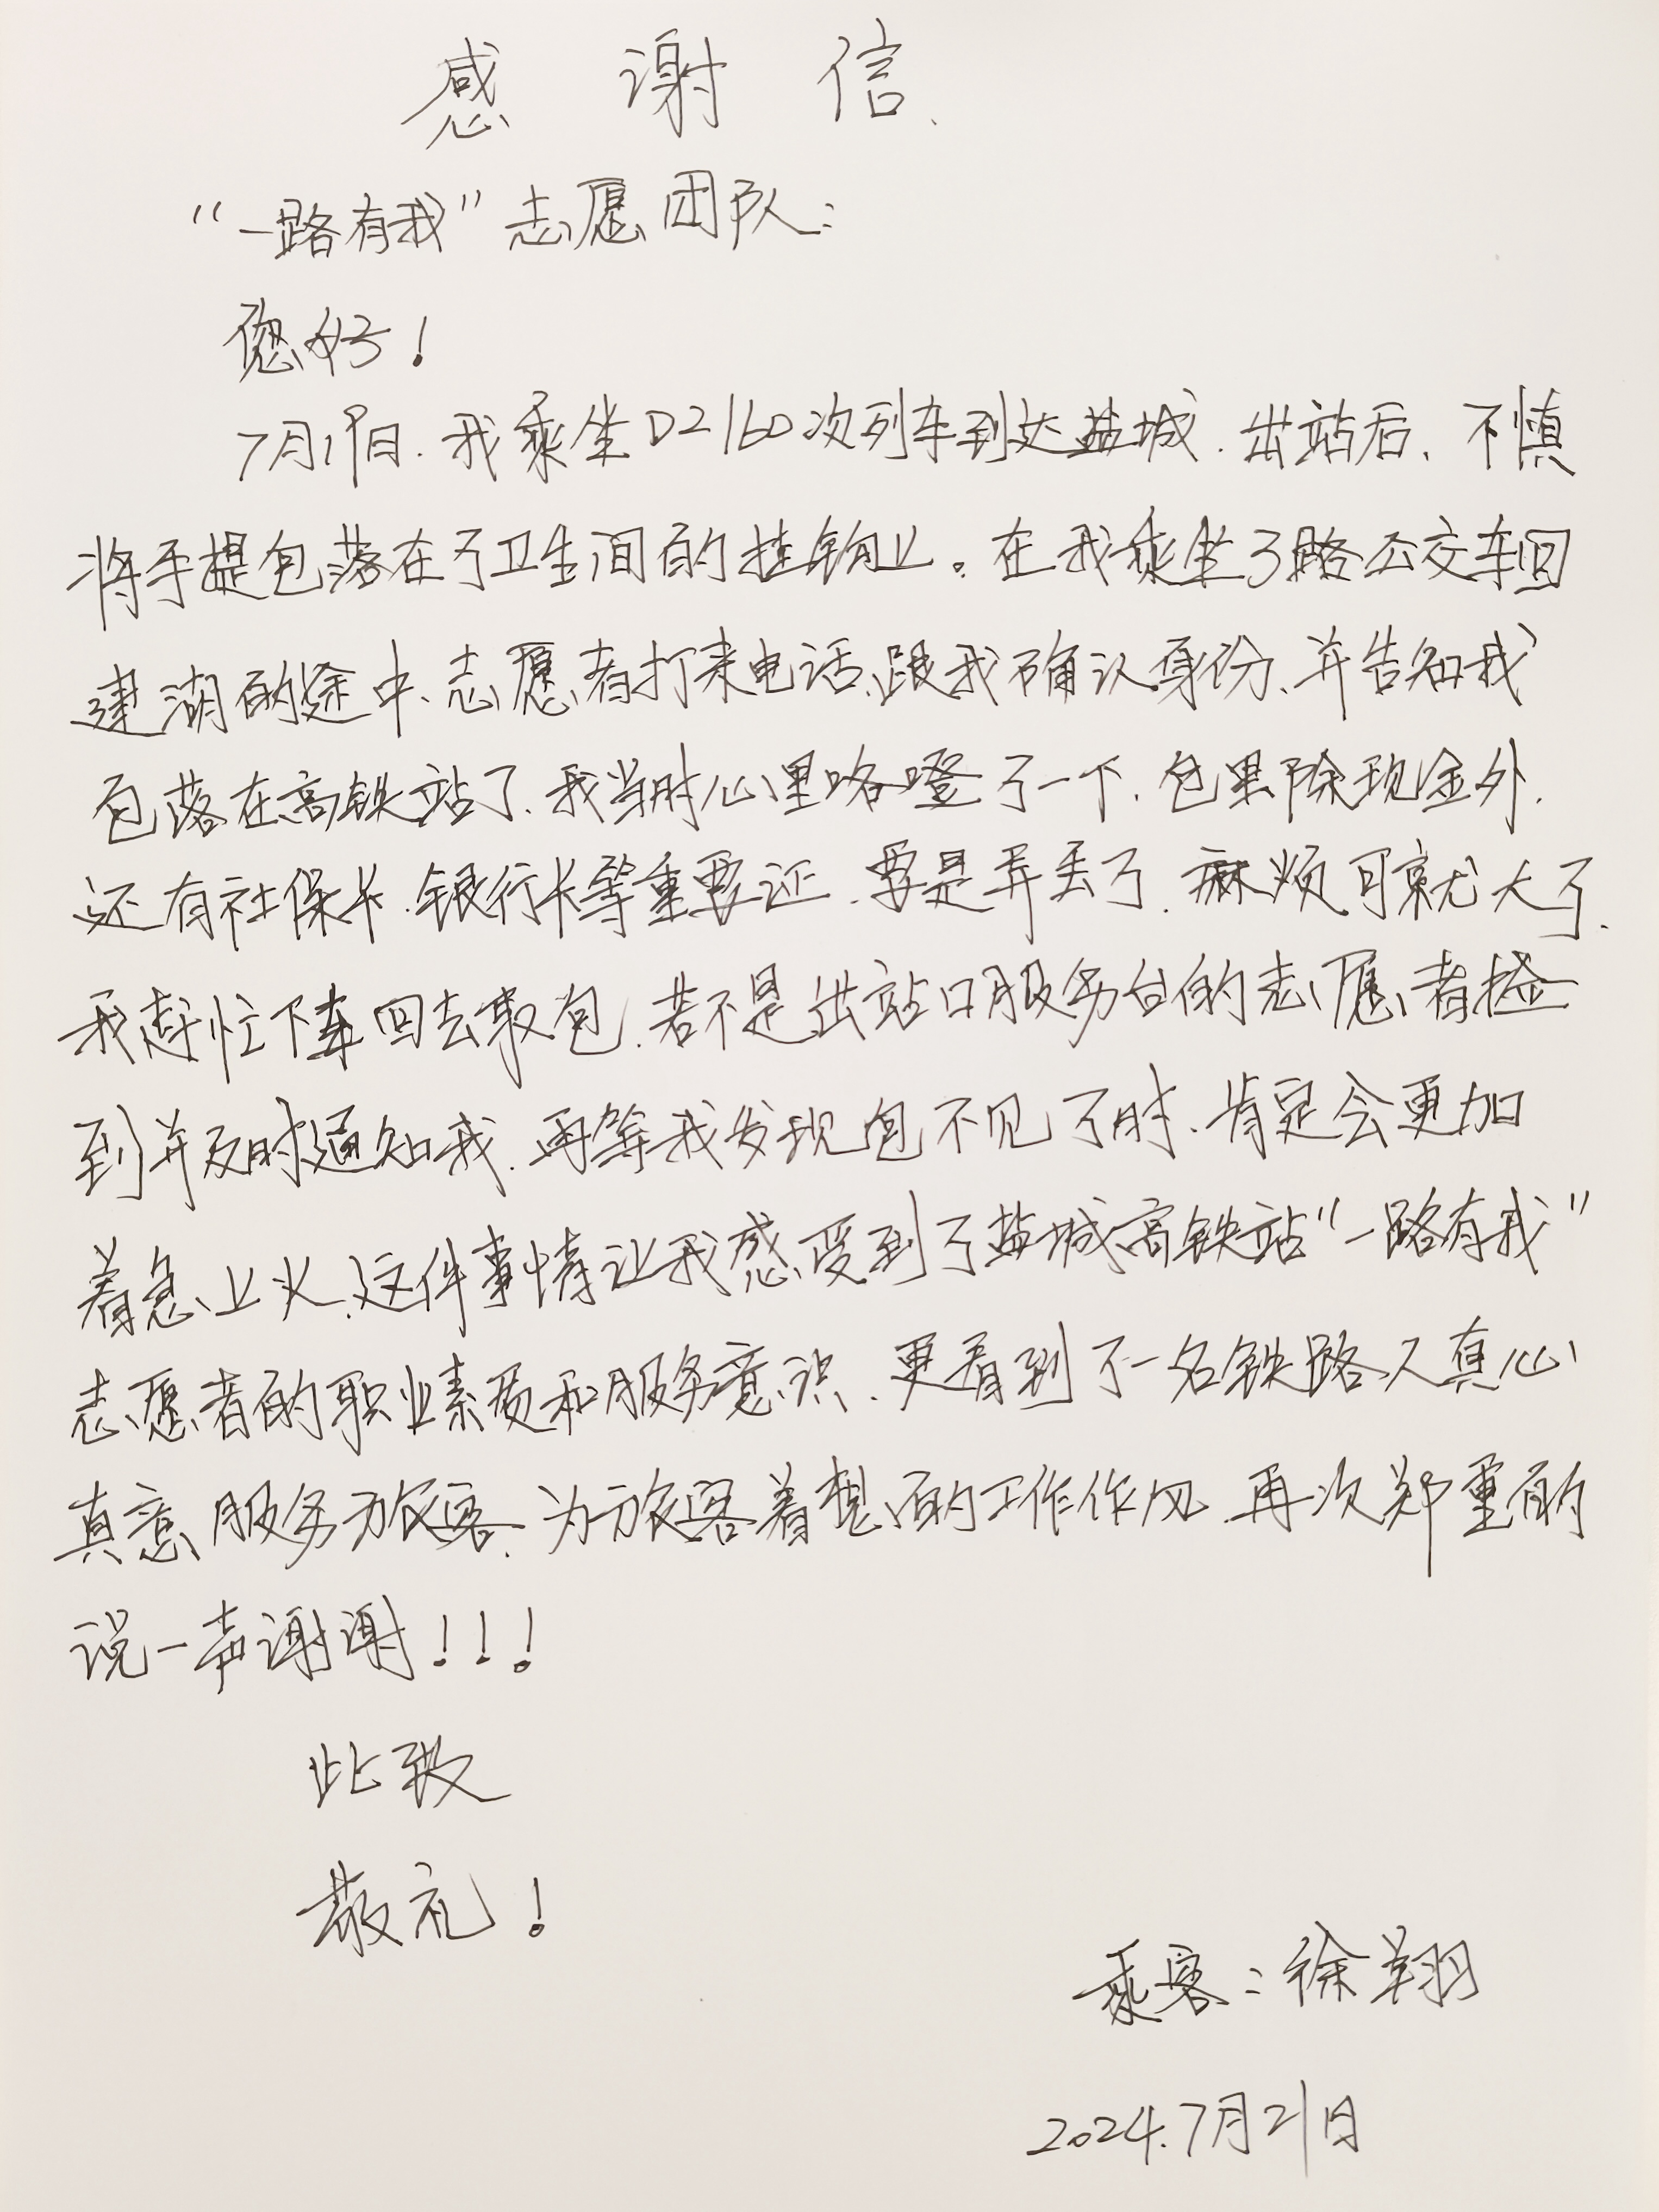 感谢信
“一路有我”志愿团队:
您好!
7月19日.我乘坐D2160次列车到达盐城.出站后、不慎
将手提包落在了卫生间的挂钩上。在我乘坐了路公交车回
建湖的途中、志愿者打来电话、跟我确认身份、并告知我
包落在高铁站了、我当时心里咯噔了一下.包里除现金外.
还有社保卡.银行卡等重要证.要是弄丢了.麻烦可就大了.
我赶忙下车回去取包.若不是出站口服务台的志愿者捡
到并及时通知我.再等我发现包不见了时.肯定会更加
着急上火.这件事情让我感受到了盐城高铁站“一路有我”
志愿者的职业素质和服务意识.更看到了一名铁路人真心
真意、服务旅客.为旅客着想的工作作风.再次郑重的
说一声谢谢!!!
此致
敬礼!
乘客:徐翔
2024.7月21日